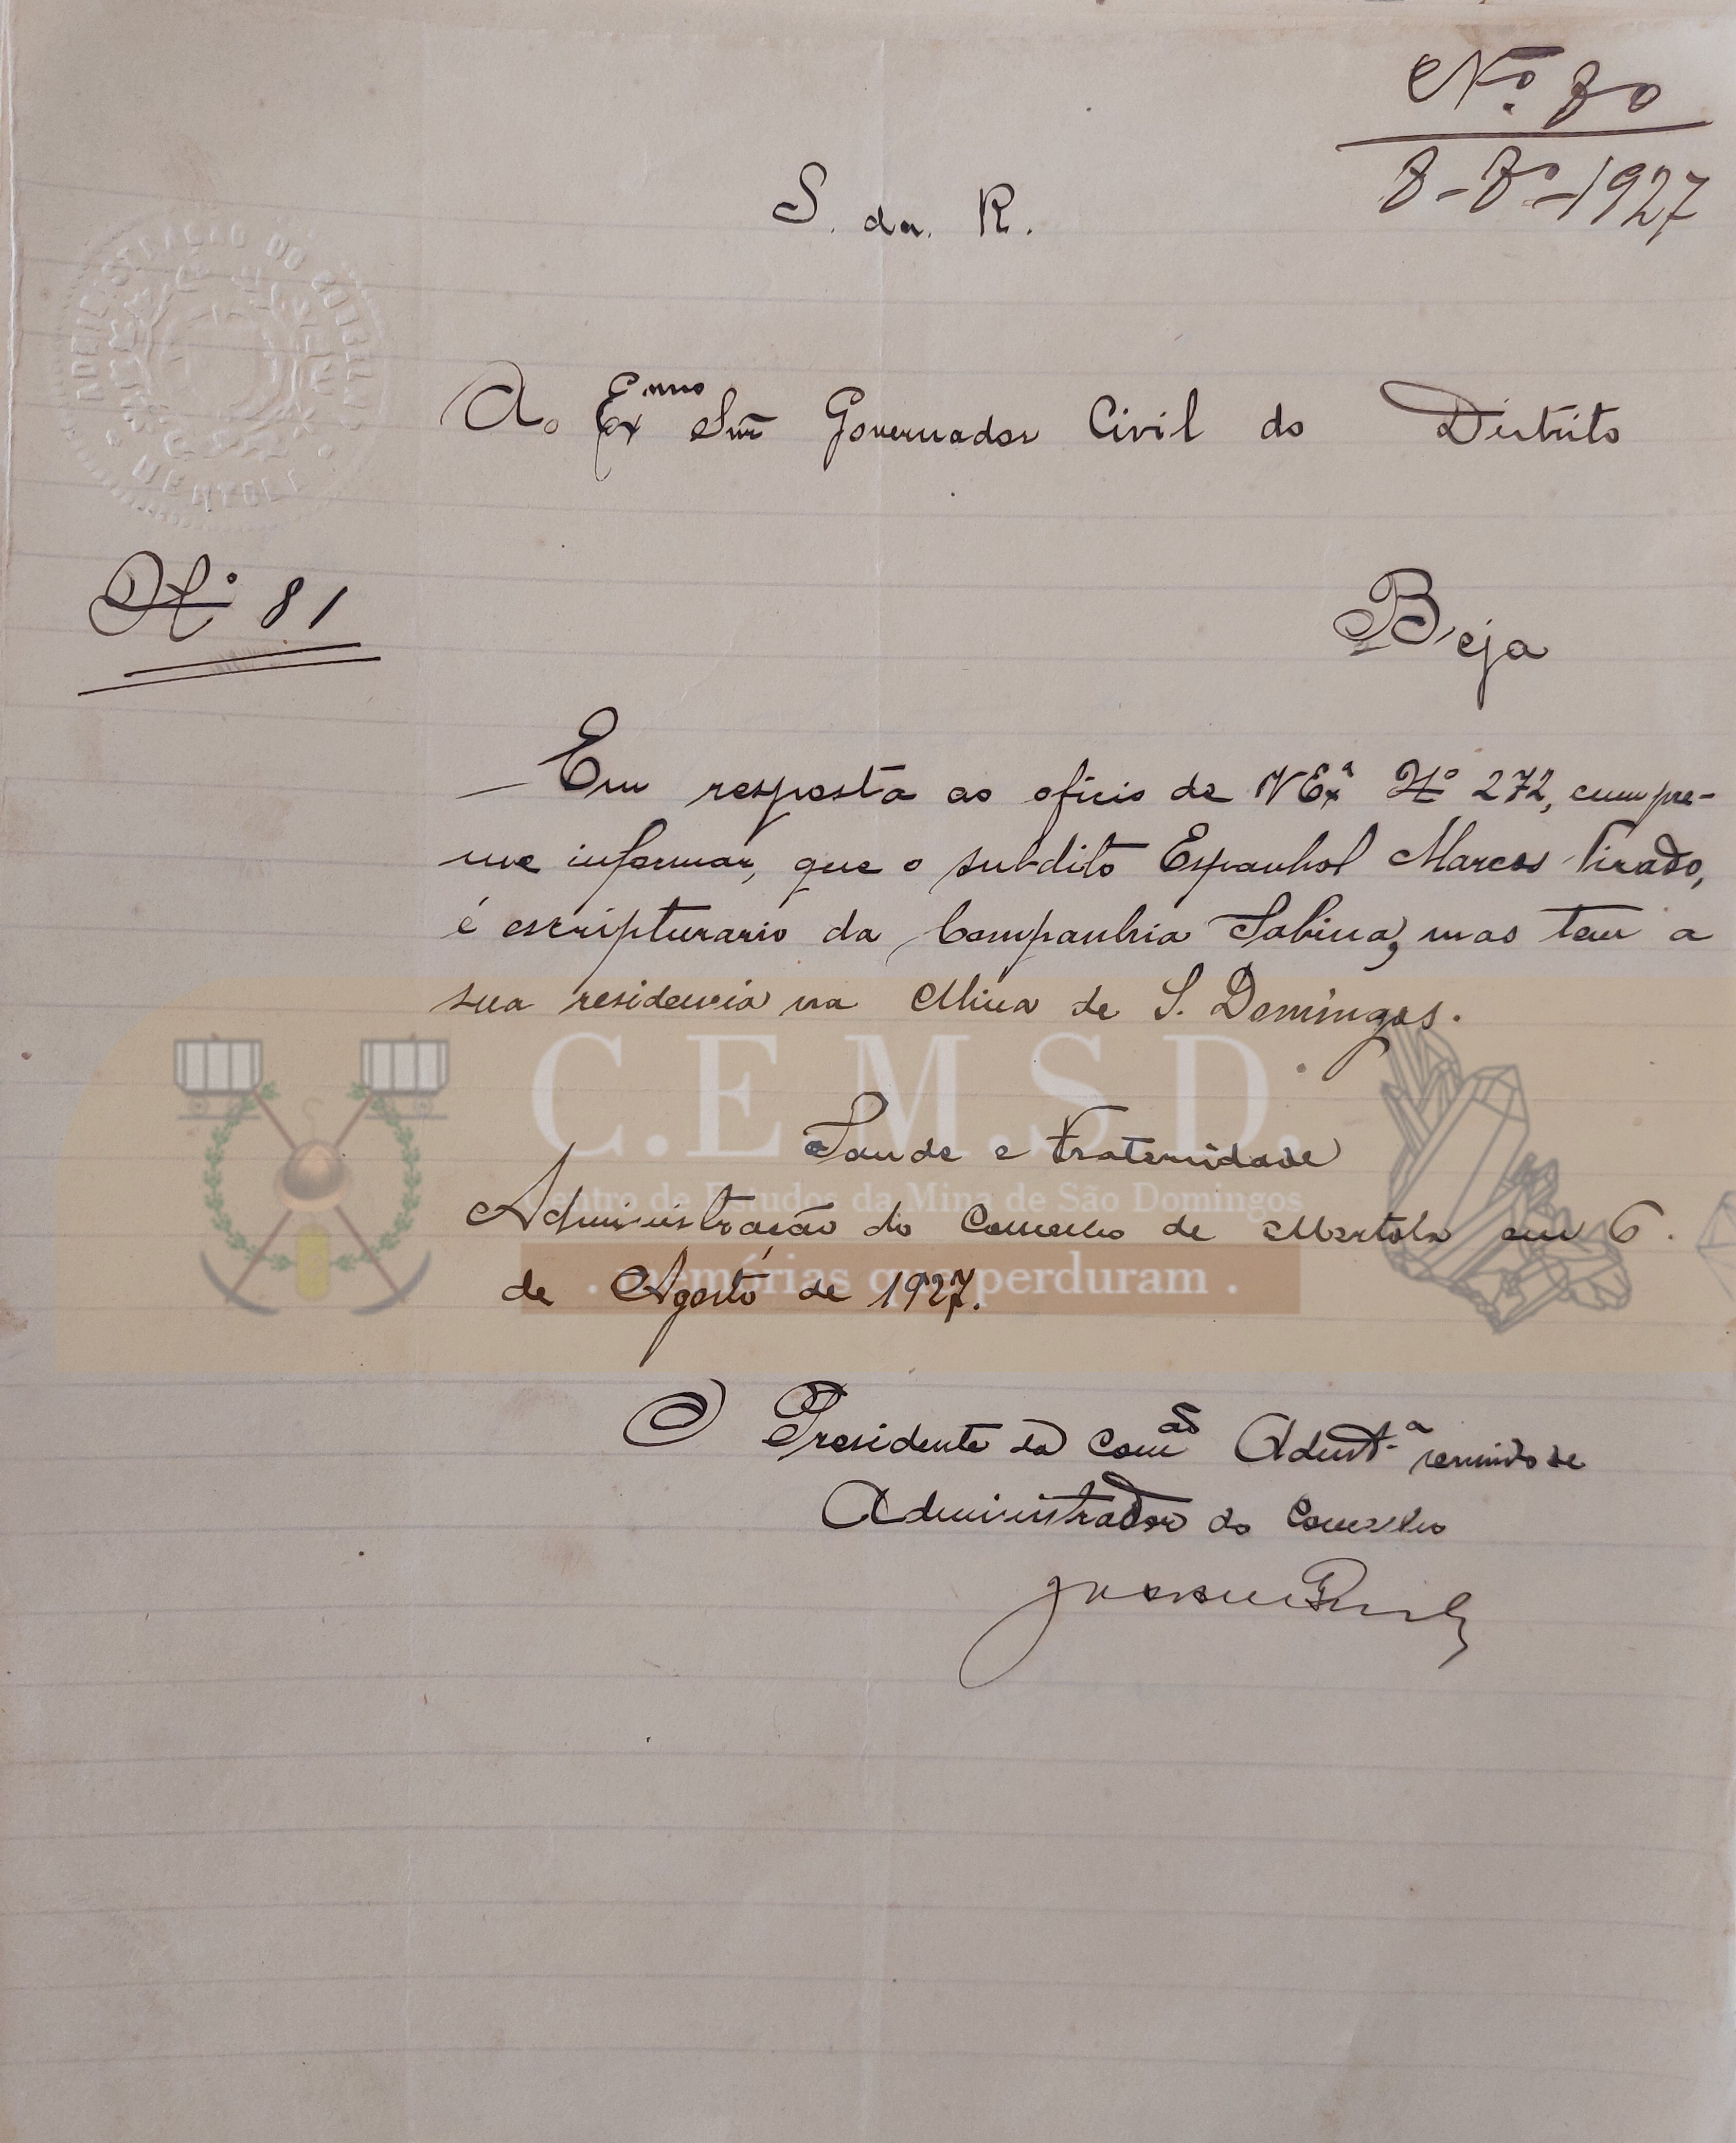 Nº 80
8-8º-1927
S. da. R.
ADMINISTRAÇÃO DO CONCELHO
MERTOLA
Ao Exmo Snr Governador Civil do Distrito
Nº 81
Beja
Em resposta ao oficio de V Exª Nº 272, cumpre-
me informar, que o subdito Espanhol Marcos Tirado,
é escripturario da Companhia Sabina, mas tem a
sua residencia na Mina de S. Domingos.
C.E.M.S.D.
Saude e Fraternidade
Centro de Estudos da Mina de São Domingos
Administração do Concelho de Mertola em 6
. memórias que perduram .
de Agosto de 1927.
O Presidente da Comão Admtª servindo de
Administrador do Concelho